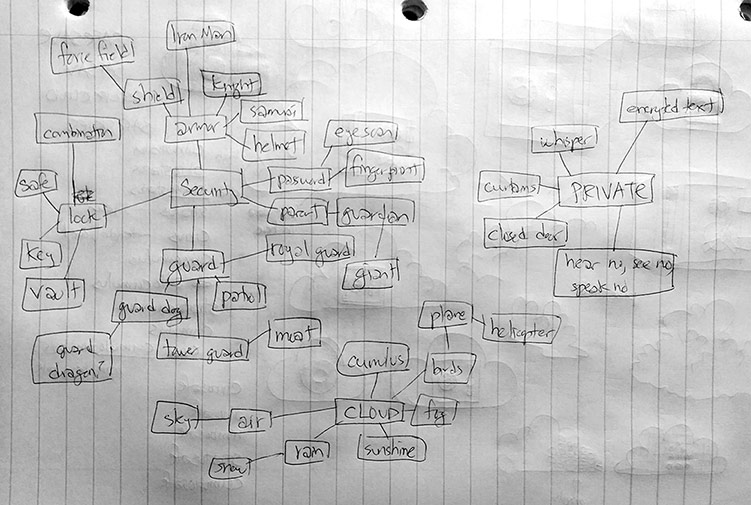 Iron Man
force field
shield
knight
samurai
armor
helmet
combination
safe
lock
key
vault
Security
password
eyescan
fingerprint
parent
guardian
giant
guard
royal guard
patrol
guard dog
guard
dragon?
tower guard
moat
encrypted text
whisper
curtains
PRIVATE
closed door
hear no, see no,
speak no
plane
helicopter
birds
cumulus
CLOUD
fog
sky
air
rain
snow
sunshine